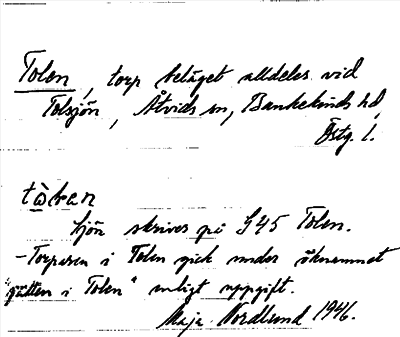 Tolen, torp beläget alldeles vid
Tolsjön, Åtvids sn, Bankekinds hd,
Östg. l.
tὼ̀lɛn
Sjön skrives på G45 Tolen.
- Torparen i Tolen gick under öknamnet
"jätten i Tolen" enligt uppgift.
Maja Nordlund 1946.